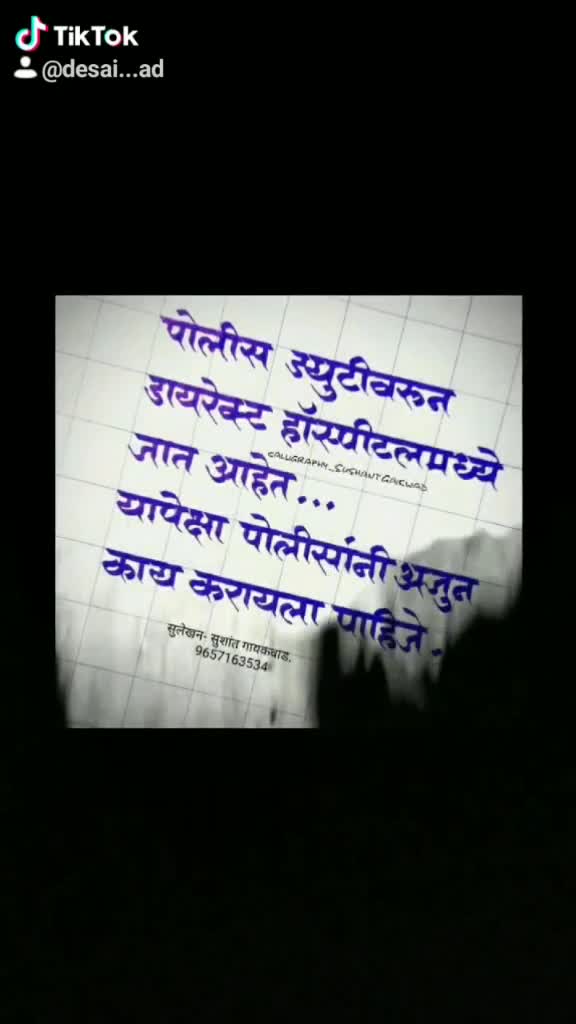 TikTok
@desai...ad
पोलीस ड्युटीवरून
डायरेक्ट हॉस्पीटलमध्ये
CALLIGRAPHY_SUSHANT GAIKWAD
जात आहेत...
यापेक्षा पोलीसांनी अजुन
काय करायला पाहिजे.
सुलेखन- सुशांत गायकवाड.
9657163534